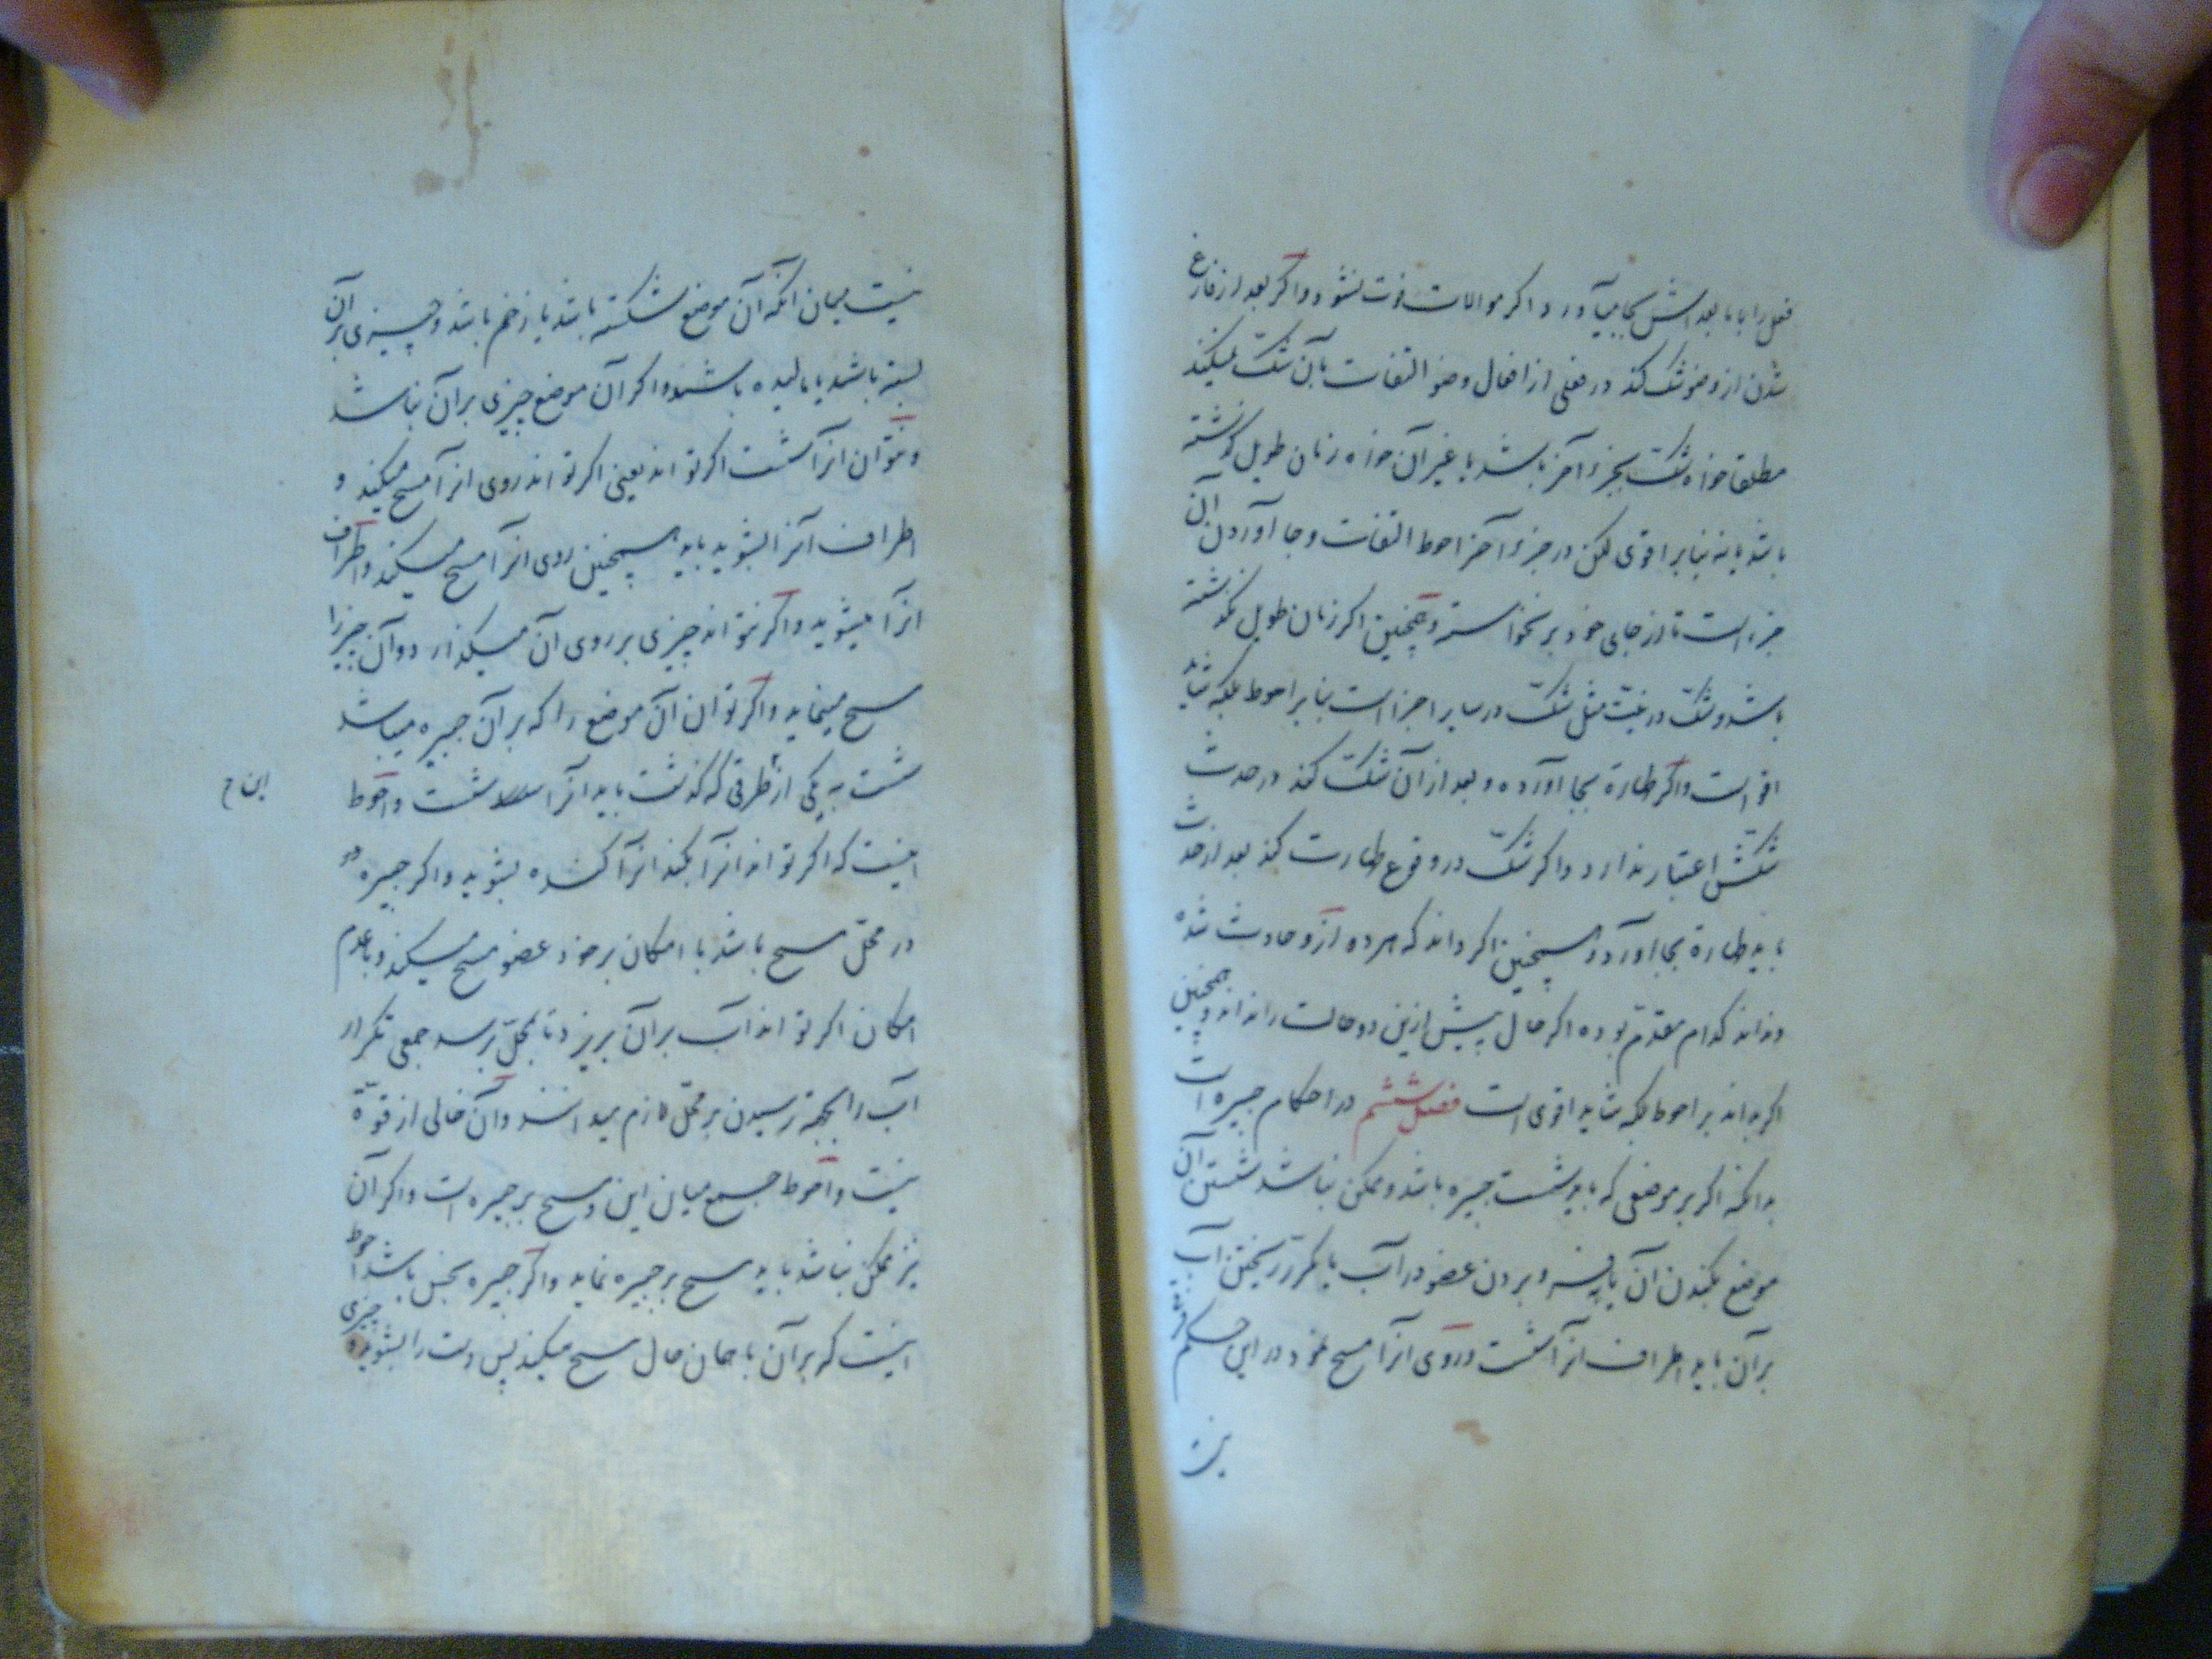 فعل را با ما بعدش بجا میآورد اگر موالات فوت نشود و اگر بعد از فارغ
شدن از وضو شک کند در فعلی از افعال وضو التفات بآن شک نمیکند
مطلقا خواه شک بجزء آخر باشد یا غیر آن خواه زمان طویل گذشته
باشد یا نه بنا بر اقوی لکن در جزء آخر احوط التفات و جا آوردن آن
جزء است تا از جای خود برنخواسته و همچنین اگر زمان طویل نگذشته
باشد و شک در نیت مثل شک در سایر اجزا است بنا بر احوط بلکه شاید
اقوی است و اگر طهارة بجا آورده و بعد از آن شک کند در حدث
شکش اعتبار ندارد و اگر شک در وقوع طهارت کند بعد از حدث
باید طهارة بجا آورد و همچنین اگر داند که هر دو ازو حادث شده
و نداند کدام مقدم بوده اگر حال پیش ازین دو حالت را نداند و همچنین
اگر بداند بر احوط بلکه شاید اقوی است فصل ششم در احکام جبیره است
بدانکه اگر بر موضعی که باید شست جبیره باشد و ممکن نباشد شستن آن
موضع بکندن آن یا بفرو بردن عضو در آب یا مکرر ریختن آب
بر آن باید اطراف آنرا شست و روی آنرا مسح نمود و در این حکم فرقی
نیست
نیست میان آنکه آن موضع شکسته باشد یا زخم باشد و چیزی بر آن
بسته باشد یا مالیده باشند و اگر آن موضع چیزی بر آن نباشد
و نتوان آنرا شست اگر تواند یعنی اگر تواند روی آنرا مسح میکند و
اطراف آنرا بشوید باید همچنین روی آنرا مسح میکند و اطراف
آنرا میشوید و اگر نتواند چیزی بر روی آن میگذارد و آن چیز را
مسح مینماید و اگر توان آن موضع را که بر آن جبیره میباشد
شست به یکی از طرقی که گذشت باید آنرا شست و احوط
اینست که اگر تواند آنرا بکند آنرا کنده بشوید و اگر جبیره
در محل مسح باشد با امکان بر خود عضو مسح میکند و با عدم
امکان اگر تواند آب بر آن بریزد تا بمحل برسد جمعی تکرار
آب را بجهة رسیدن بر محل لازم میدانند و آن خالی از قوة
نیست و احوط جمع میان این و مسح بر جبیره است و اگر آن
نیز ممکن نباشد باید مسح بر جبیره نماید و اگر جبیره نجس باشد احوط
اینست که بر آن با همان حال مسح میکند پس دست را بشوید و چیزی